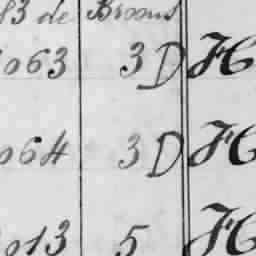 83 de Broons
063 3 D H
064 3 D H
013 5 H